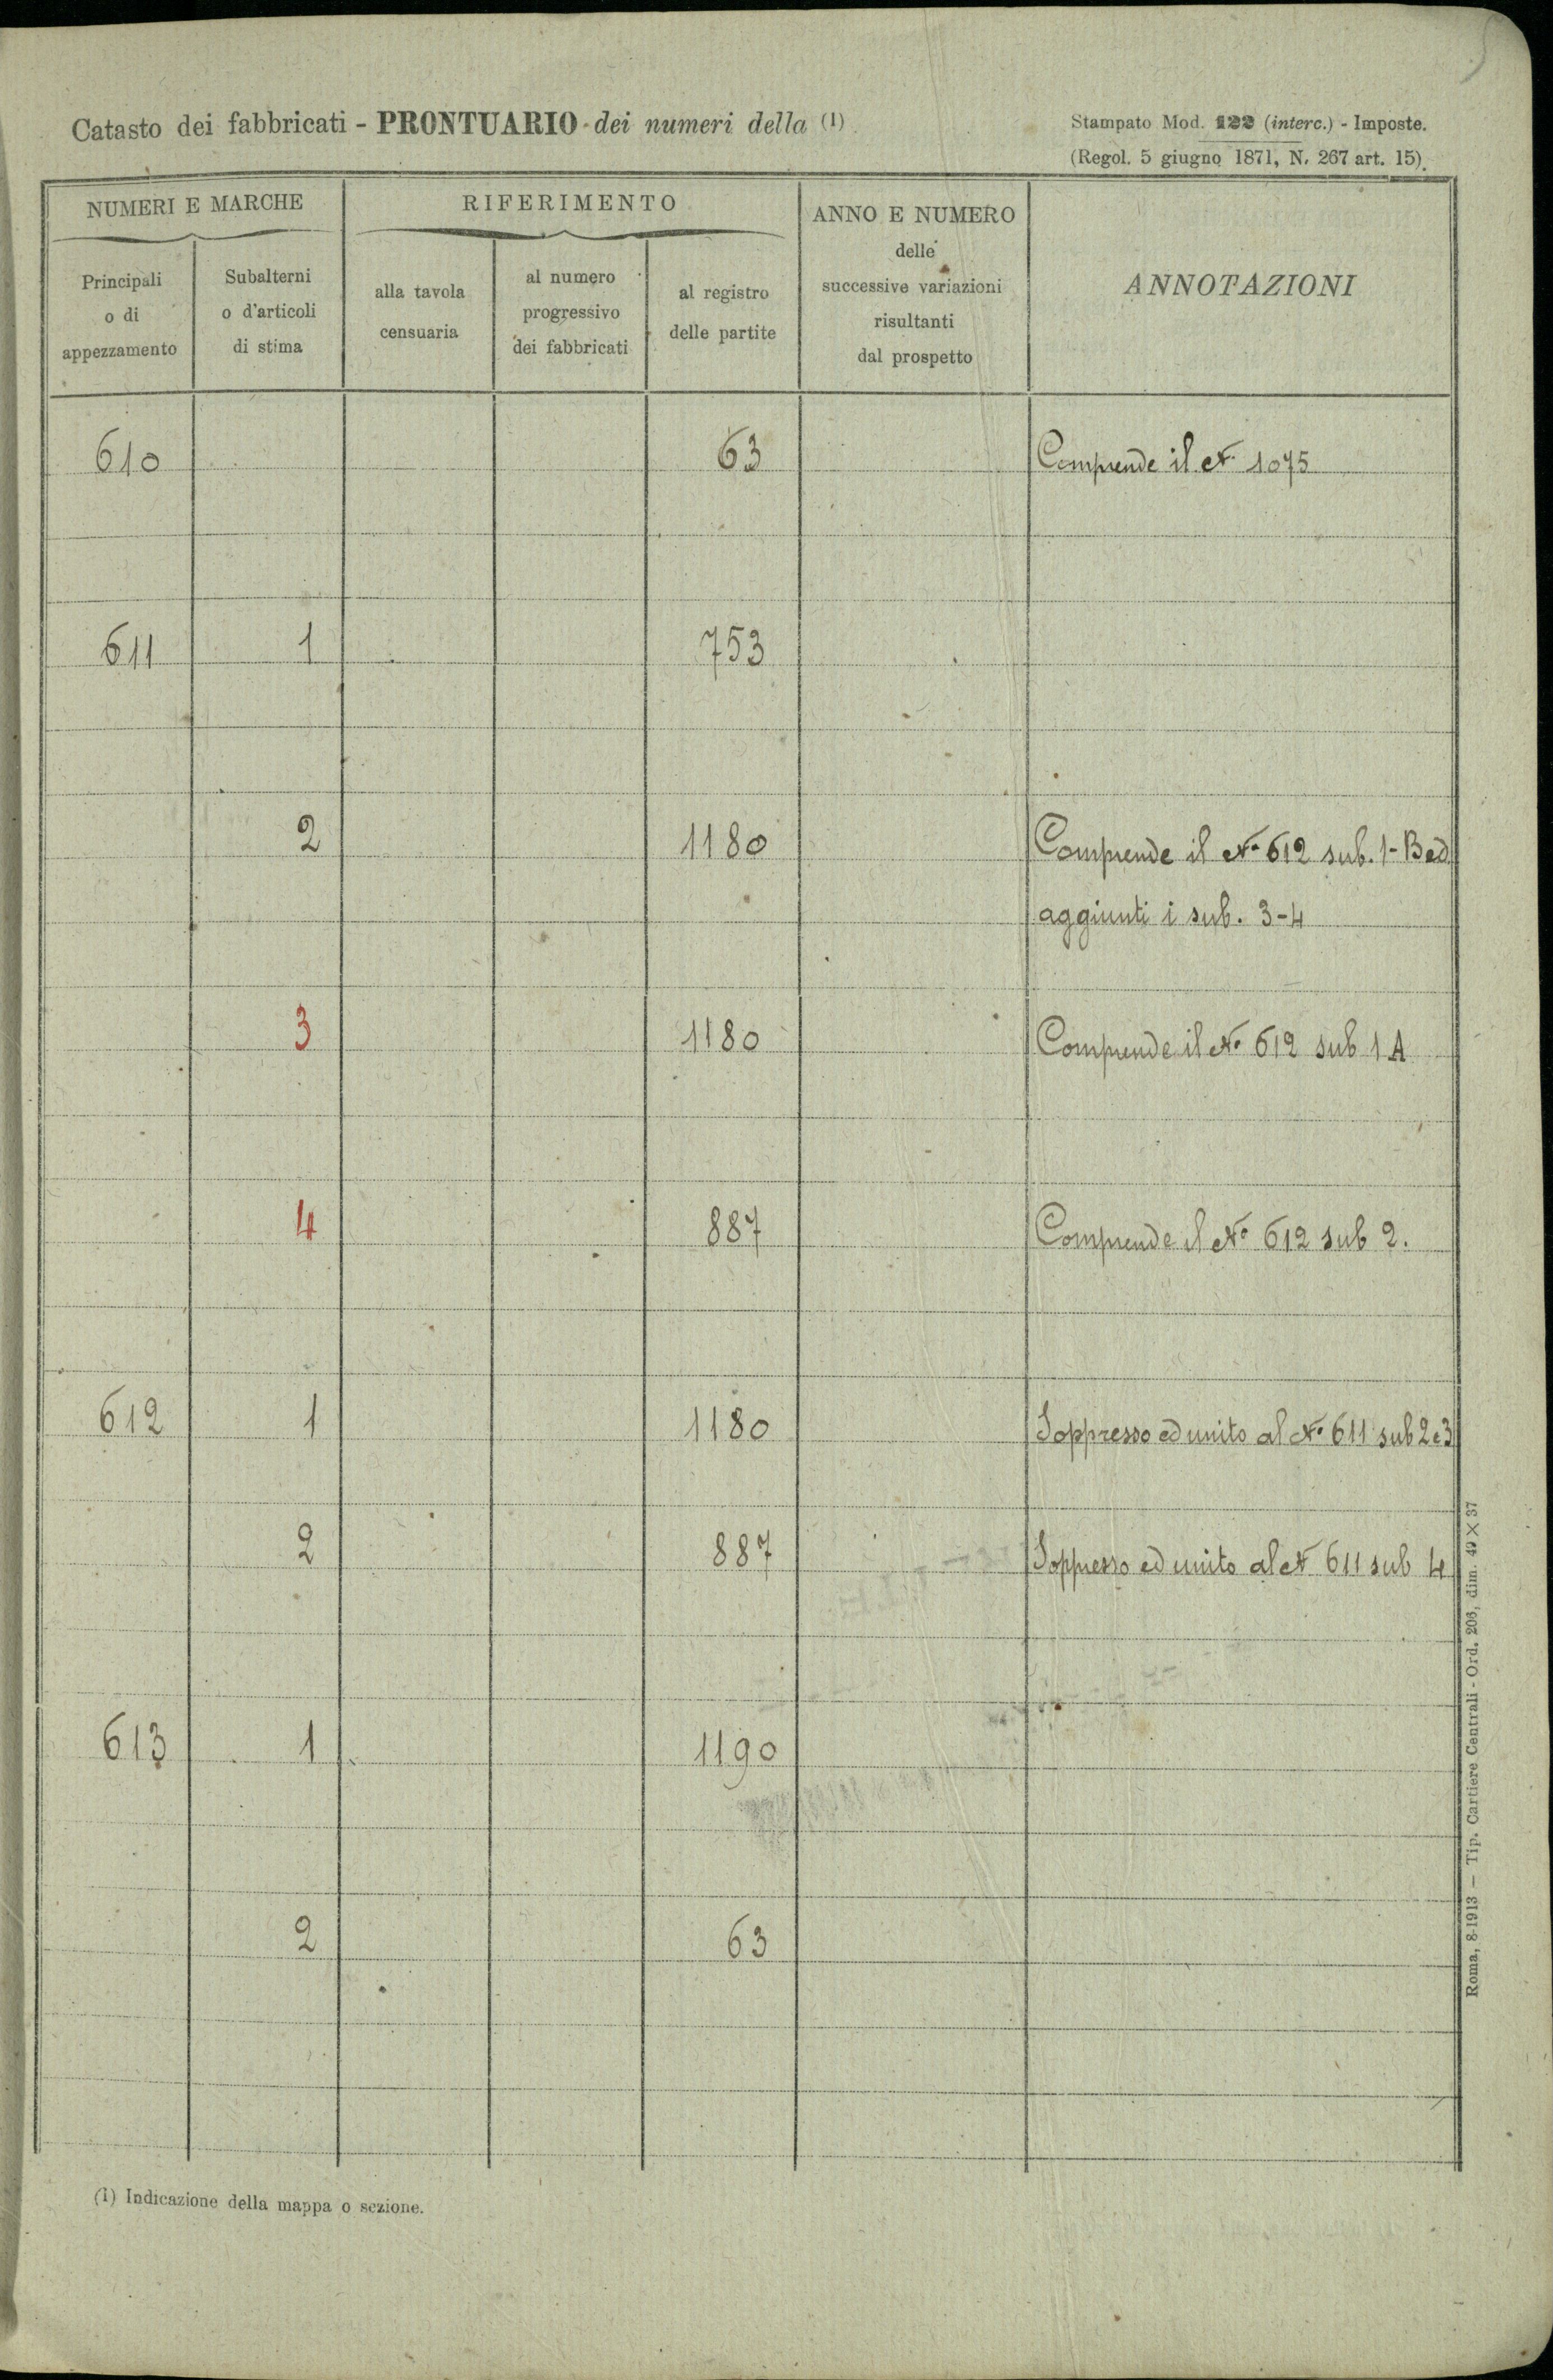 Catasto dei fabbricati - PRONTUARIO dei numeri della (1)
Stampato Mod. 122 (interc.) - Imposte.
(Regol. 5 giugno 1871, N. 267 art. 15).
NUMERI E MARCHE
RIFERIMENTO
ANNO E NUMERO
delle
successive variazioni
risultanti
dal prospetto
ANNOTAZIONI
Principali
o di
appezzamento
Subalterni
o d'articoli
di stima
alla tavola
censuaria
al numero
progressivo
dei fabbricati
al registro
delle partite
610 63 Comprende il N. 1075
611 1 753
2 1180 Comprende il No 612 sub. 1-B ed
aggiunti i sub. 3-4
3 1180 Comprende il No 612 sub 1 A
4 887 Comprende il No 612 sub 2.
612 1 1180 Soppresso ed unito al No 611 sub 2 e 3
2 887 Soppresso ed unito al N 611 sub 4
613 1 1190
2 63
(1) Indicazione della mappa o sezione.
Roma, 8-1913 — Tip. Cartiere Centrali - Ord. 206, dim. 49 X 37